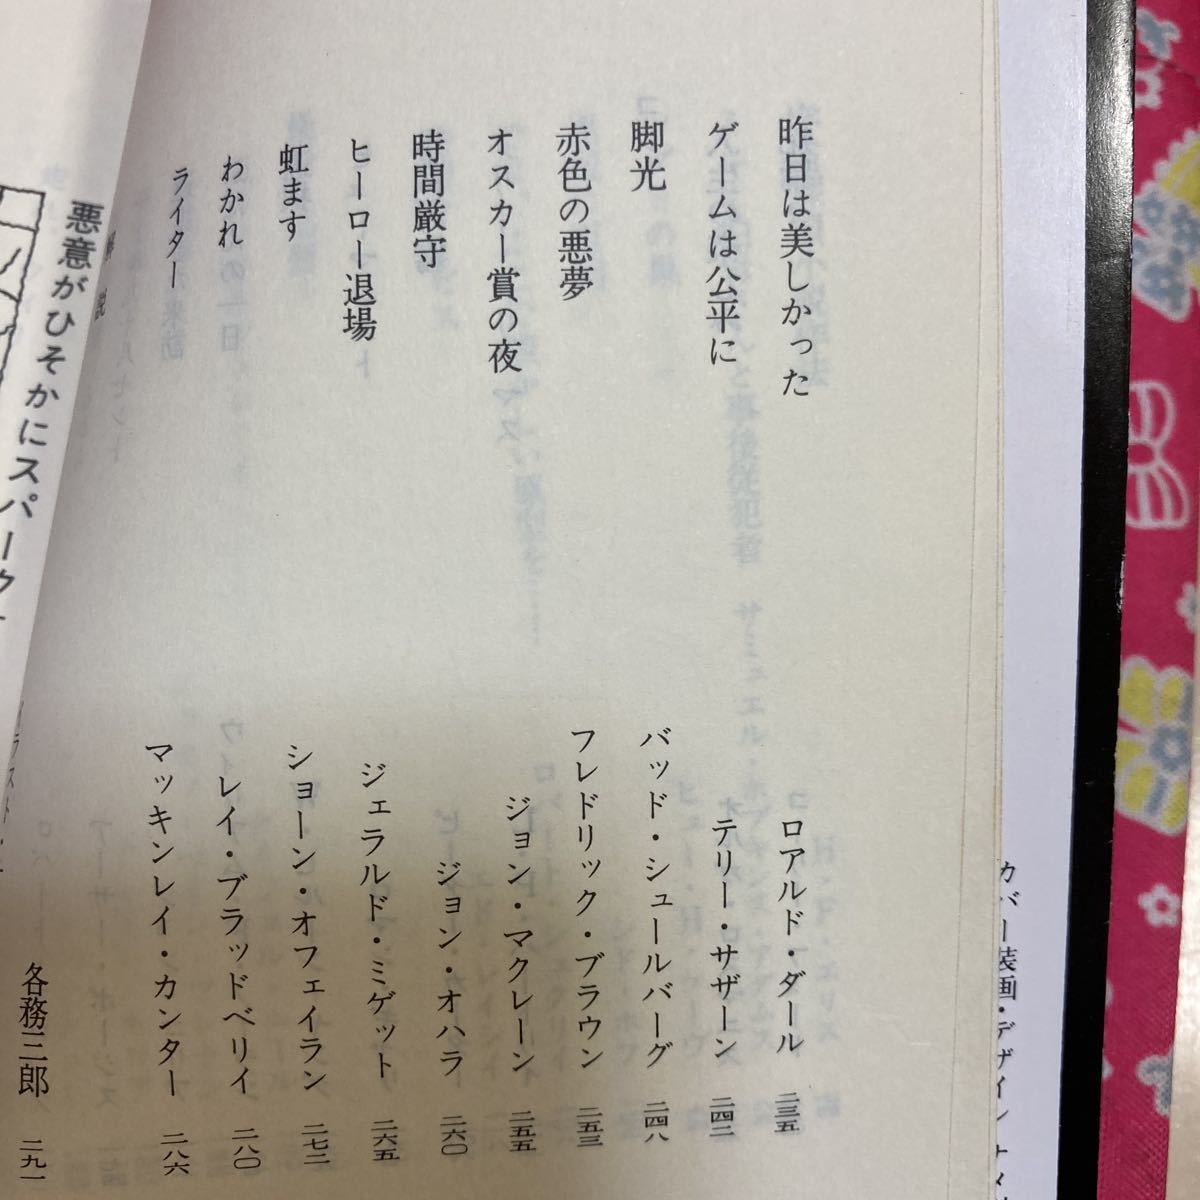 昨日は美しかった　ロアルド・ダール　二三五
ゲームは公平に　テリー・サザーン　二四二
脚光　バッド・シュールバーグ　二四八
赤色の悪夢　フレドリック・ブラウン　二五三
オスカー賞の夜　ジョン・マクレーン　二五五
時間厳守　ジョン・オハラ　二六〇
ヒーロー退場　ジェラルド・ミゲット　二六五
虹ます　ショーン・オフェイラン　二七二
わかれ　レイ・ブラッドベリイ　二八〇
ライター　マッキンレイ・カンター　二八六
解説　各務三郎　二九一
悪意がひそかにスパーク
カバー装画・デザイン